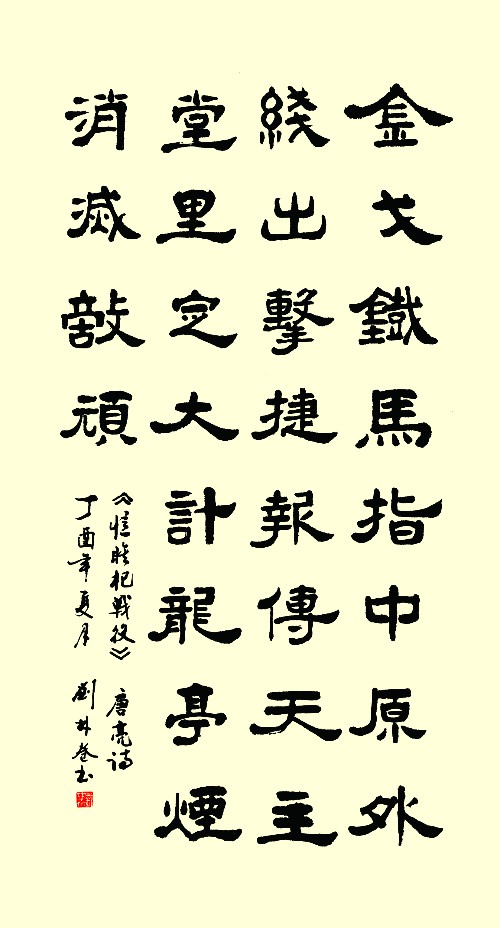 金戈鐵馬指中原外
綫出擊捷報傳天主
堂里定大計龍亭煙
消滅敵頑
《憶睢杞戰役》 唐亮诗
丁酉年夏月 劉林书